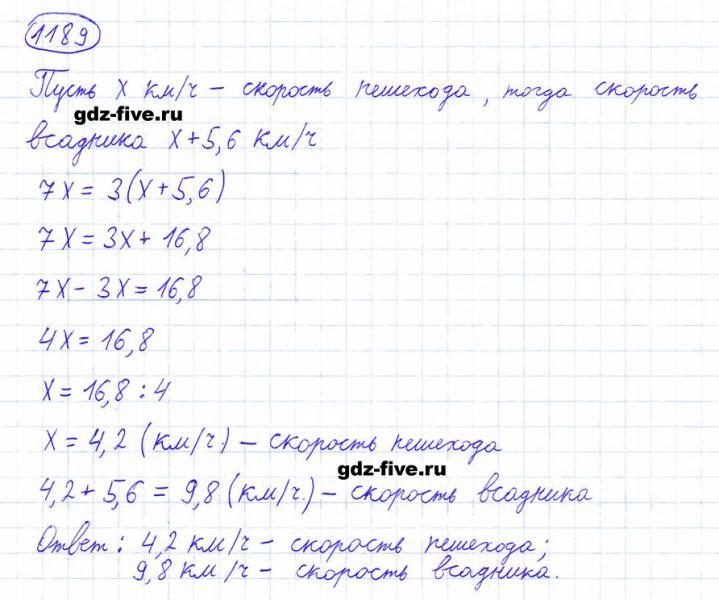 1189
Пусть x км/ч – скорость пешехода, тогда скорость
gdz-five.ru
всадника x + 5,6 км/ч
7x = 3(x + 5,6)
7x = 3x + 16,8
7x – 3x = 16,8
4x = 16,8
x = 16,8 : 4
x = 4,2 (км/ч.) – скорость пешехода
gdz-five.ru
4,2 + 5,6 = 9,8 (км/ч.) – скорость всадника
Ответ: 4,2 км/ч – скорость пешехода;
9,8 км/ч – скорость всадника.